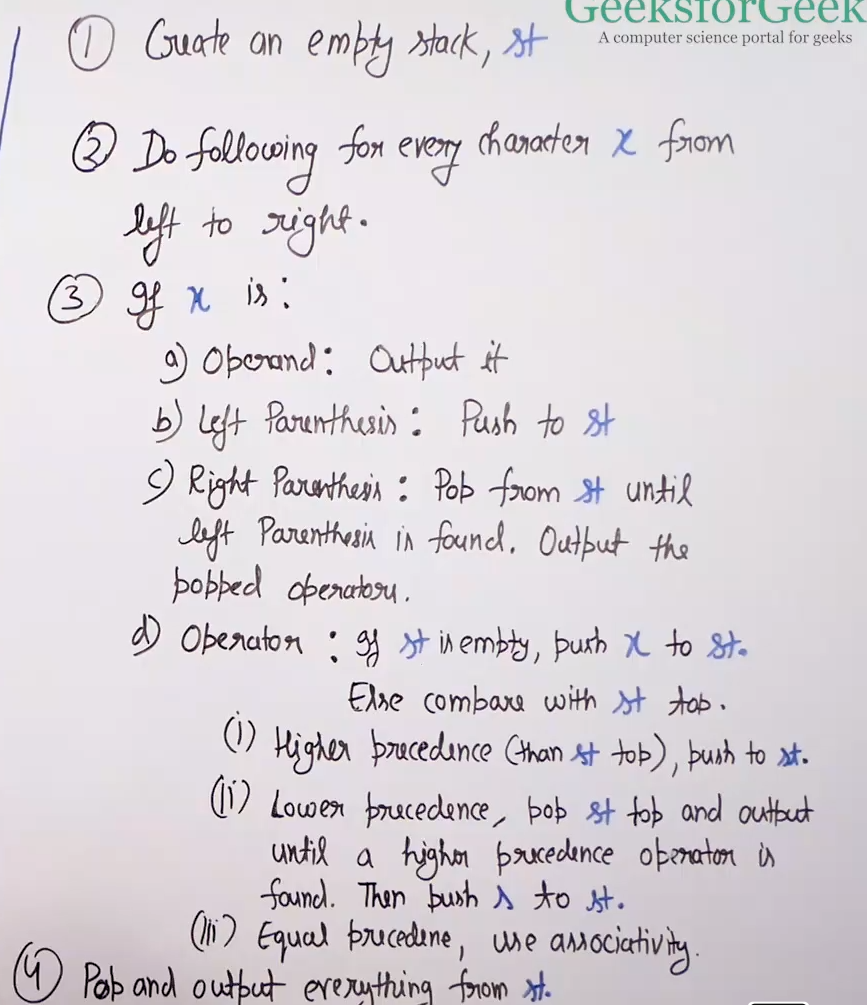 GeeksforGeek
A computer science portal for geeks
① Create an empty stack, st
② Do following for every character x from
left to right.
③ If x is:
a) Operand: Output it
b) Left Parenthesis: Push to st
c) Right Parenthesis: Pop from st until
left Parenthesis is found. Output the
popped operators.
d) Operator: If st is empty, push x to st.
Else compare with st top.
(i) Higher precedence (than st top), push to st.
(ii) Lower precedence, pop st top and output
until a higher precedence operator is
found. Then push s to st.
(iii) Equal precedene, use associativity.
④ Pop and output everything from st.